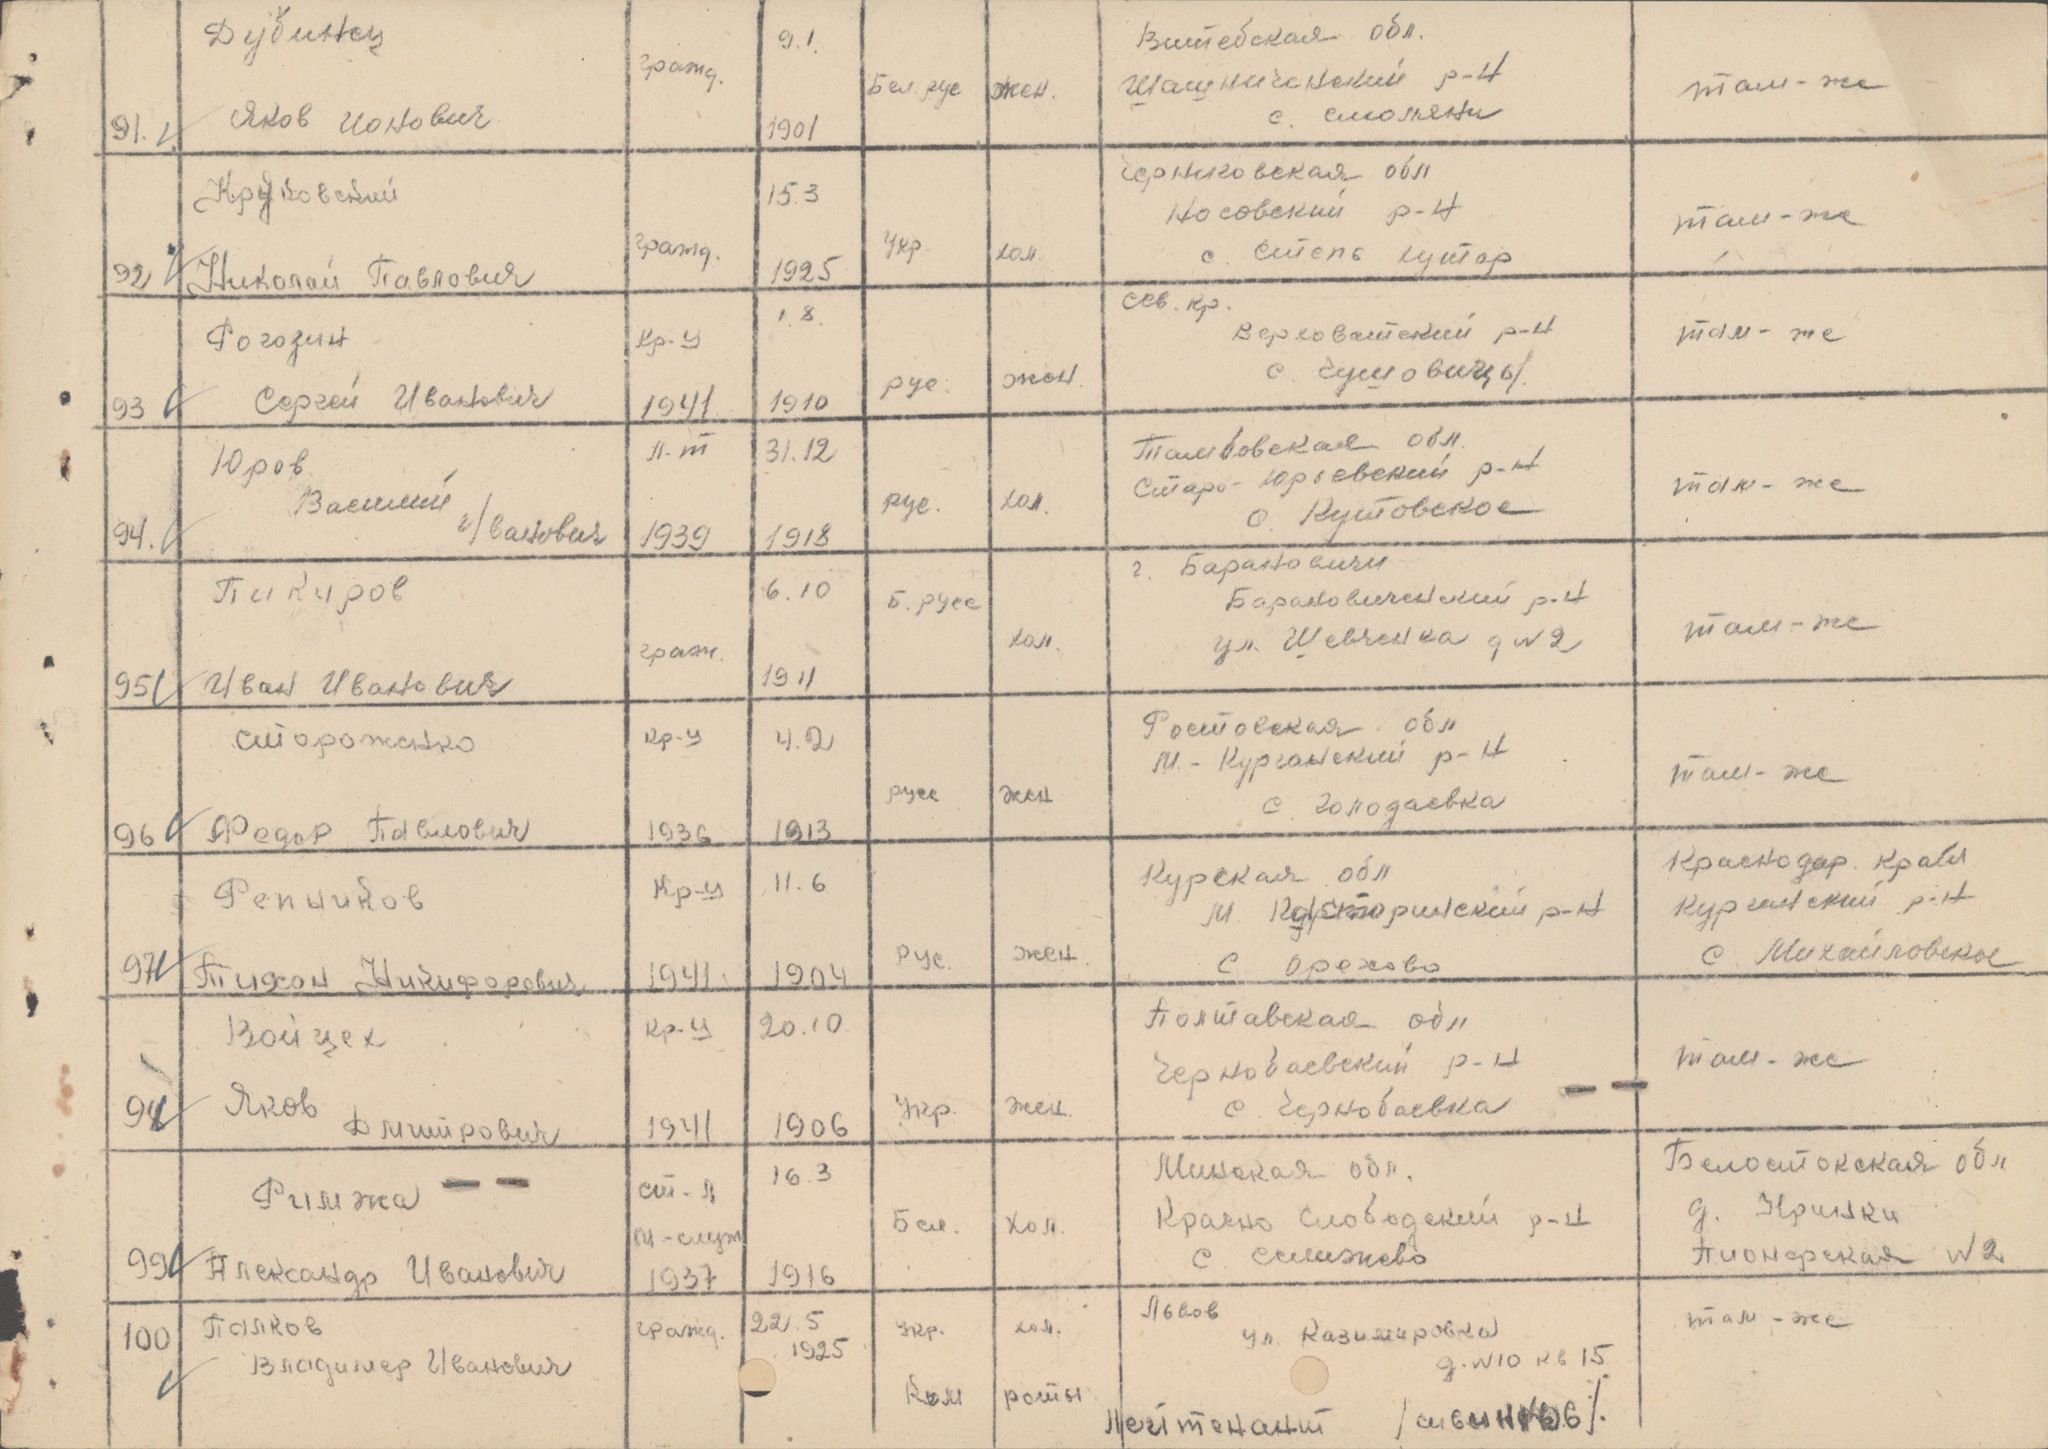 91. Дубинец гражд. 9.1. Бел. рус жен. Витебская обл. там-же
Яков Ионович 1901 р-н
с. Смоляни
92 Круковский гражд. 15.3 Укр. хол. Черниковская обл там-же
Николай Павлович 1925 Носовский р-н
с. Степь Хутор
93 Рогозин Кр-ц 1.8. рус. жен. Сев. кр. там-же
Сергей Иванович 1941 1910 Верховатский р-н
с. Чушовицы.
94. Юров Л-т 31.12 рус. хол. Тамбовская обл. там-же
Василий Иванович 1939 1918 Старо-Юрьевский р-н
Кутовское
95 Пикиров граж. 6.10 Б.русс хол. г. Барановичи там-же
Иван Иванович 1911 Барановиченский р-н
ул. Шевченка д N2
96 Стороженко Кр-ц 4.2 русс жен Ростовская обл там-же
Федор Павлович 1936 1913 М.-Курганский р-н
с. Голодаевка
97 Репников Кр-ц 11.6 рус. жен. Курская обл Краснодар. край
Тихон Никифорович 1941. 1904 М. р-н Курганский р-н
с. Орехово с Михайловское
Войцех Кр-ц 20.10 Укр. жен. Полтавская обл там-же
Яков Дмитрович 1941 1906 Чернобаевский р-н
с. Чернобаевка
99 Римжа ст-л 16.3 Бел. хол. Минская обл. Белостокская обл
м-служ Красно Слободский р-н д. Кринки
Александр Иванович 1937 1916 с Пионерская N2
100 Палков гражд. 22.5 Укр. хол. Львов там-же
Владимер Иванович 1925 ул. Казимировка
д. N10 кв 15
Ком роты
Лейтенант